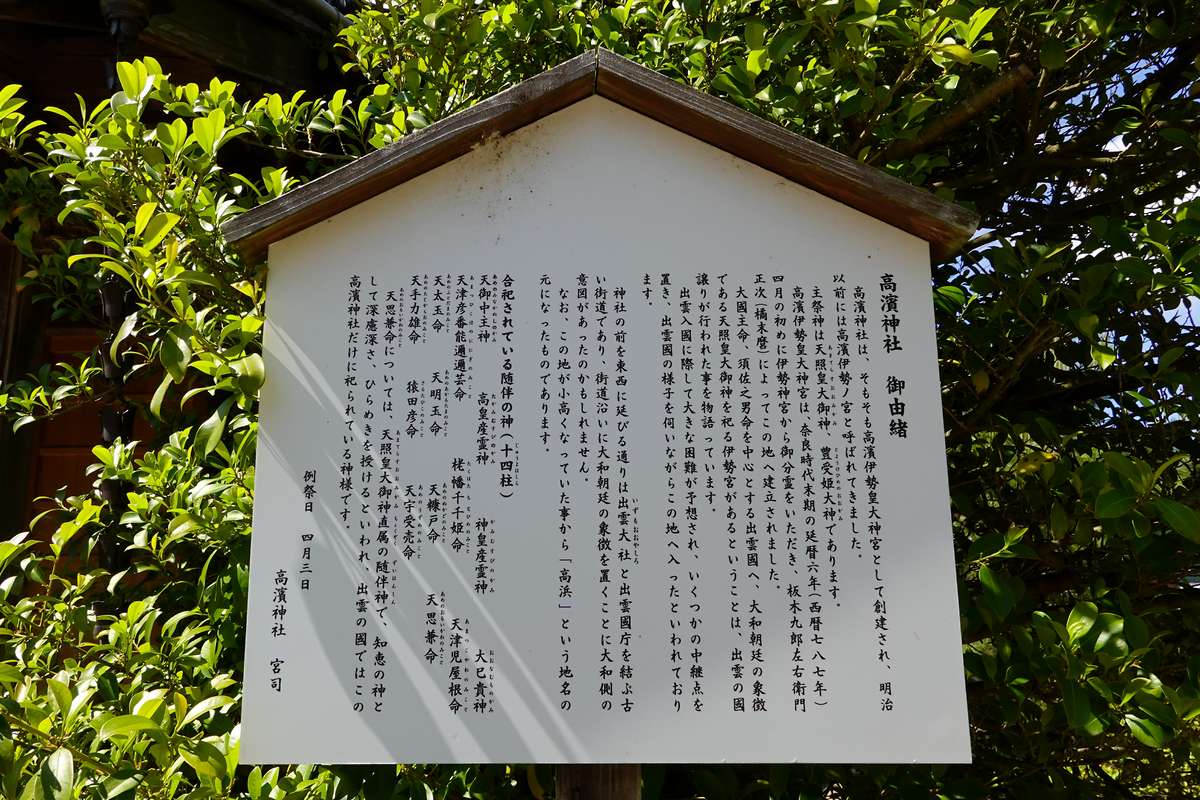 高濱神社　御由緒
高濱神社は、そもそも高濱伊勢皇大神宮として創建され、明治
以前には高濱伊勢ノ宮と呼ばれてきました。
主祭神は天照皇大御神、豊受姫大神であります。
高濱伊勢皇大神宮は、奈良時代末期の延暦六年（西暦七八七年）
四月の初めに伊勢神宮から御分霊をいただき、板木九郎左右衛門
正次（橘末麿）によってこの地へ建立されました。
大國主命、須佐之男命を中心とする出雲國へ、大和朝廷の象徴
である天照皇大御神を祀る伊勢宮があるということは、出雲の國
譲りが行われた事を物語っています。
出雲入國に際して大きな困難が予想され、いくつかの中継点を
置き、出雲國の様子を伺いながらこの地へ入ったといわれており
ます。
神社の前を東西に延びる通りは出雲大社と出雲國庁を結ぶ古
い街道であり、街道沿いに大和朝廷の象徴を置くことに大和側の
意図があったのかもしれません。
なお、この地が小高くなっていた事から「高浜」という地名の
元になったものであります。
合祀されている随伴の神（十四柱）
天御中主神　高皇産霊神　神皇産霊神　大巳貴神
天津彦番能邇邇芸命　栲幡千千姫命　天津児屋根命
天太玉命　天明玉命　天糠戸命　天思兼命
天手力雄命　猿田彦命　天宇受売命
天思兼命については、天照皇大御神直属の随伴神で、知恵の神と
して深慮深さ、ひらめきを授けるといわれ、出雲の國ではこの
高濱神社だけに祀られている神様です。
例祭日　四月三日
高濱神社　宮司